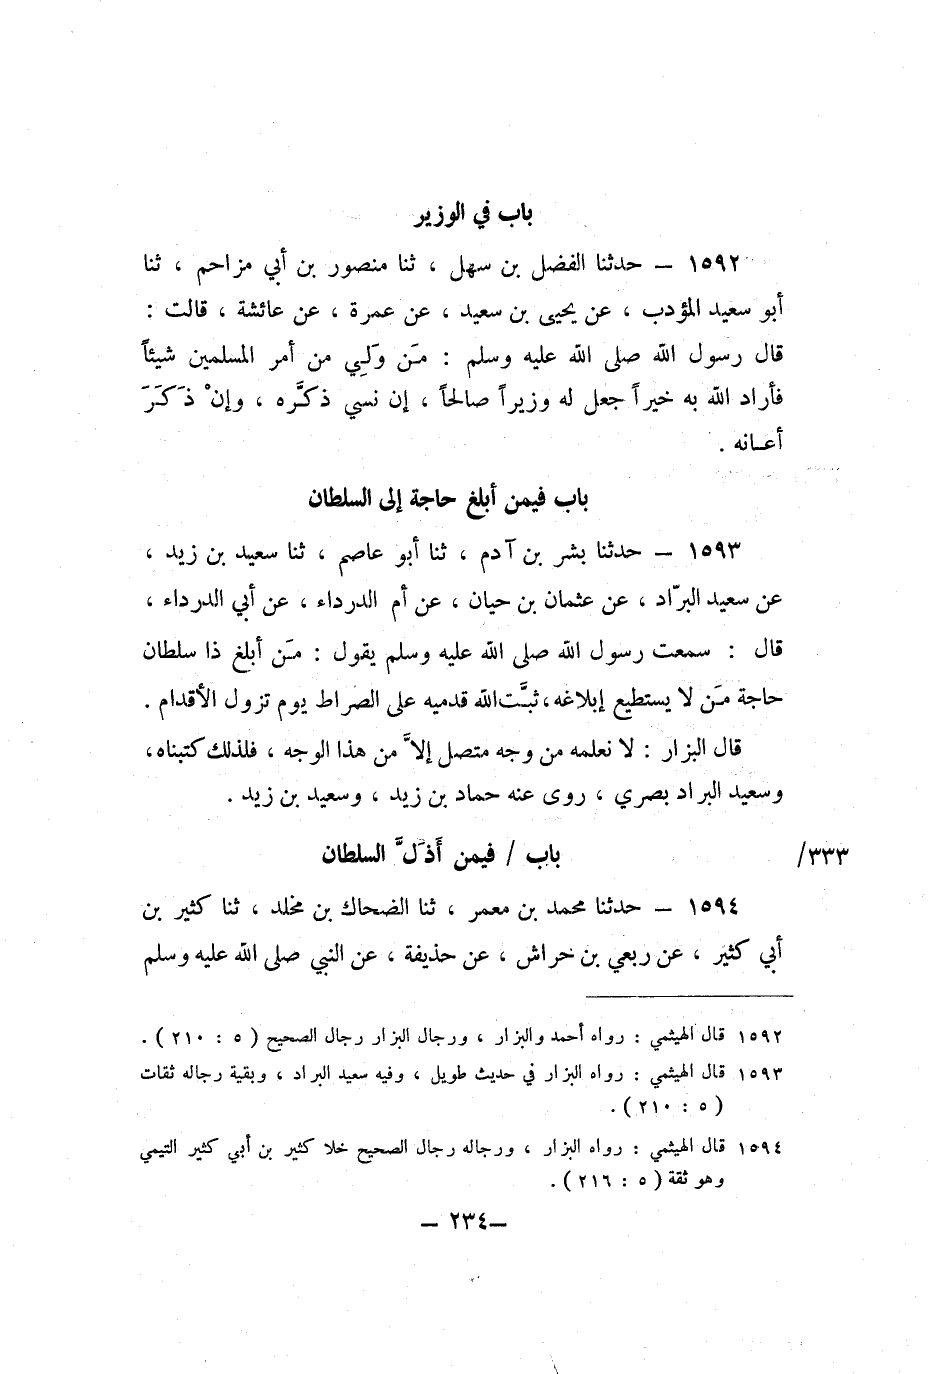 باب في الوزير
١٥٩٢ – حدثنا الفضل بن سهل ، ثنا منصور بن أبي مزاحم ، ثنا
أبو سعيد المؤدب ، عن يحيى بن سعيد ، عن عمرة ، عن عائشة ، قالت :
قال رسول الله صلى الله عليه وسلم : مَن وَلِي من أمر المسلمين شيئاً
فأراد الله به خيراً جعل له وزيراً صالحاً ، إن نسي ذكَّره ، وإنْ ذَكَرَ
أعـانه .
باب فيمن أبلغ حاجة إلى السلطان
١٥٩٣ – حدثنا بشر بن آدم ، ثنا أبو عاصم ، ثنا سعيد بن زيد ،
عن سعيد البرّاد ، عن عثمان بن حيان ، عن أم الدرداء ، عن أبي الدرداء ،
قال : سمعت رسول الله صلى الله عليه وسلم يقول : مَن أبلغ ذا سلطان
حاجة مَن لا يستطيع إبلاغه ، ثبَّت الله قدميه على الصراط يوم تزول الأقدام .
قال البزار : لا نعلمه من وجه متصل إلاَّ من هذا الوجه ، فلذلك كتبناه ،
وسعيد البراد بصري ، روى عنه حماد بن زيد ، وسعيد بن زيد .
باب / فيمن أَذَلَّ السلطان
٣٣٣/
١٥٩٤ – حدثنا محمد بن معمر ، ثنا الضحاك بن مخلد ، ثنا كثير بن
أبي كثير ، عن ربعي بن حراش ، عن حذيفة ، عن النبي صلى الله عليه وسلم
١٥٩٢ قال الهيثمي : رواه أحمد والبزار ، ورجال البزار رجال الصحيح ( ٥ : ٢١٠ ) .
١٥٩٣ قال الهيثمي : رواه البزار في حديث طويل ، وفيه سعيد البراد ، وبقية رجاله ثقات
( ٥ : ٢١٠ ) .
١٥٩٤ قال الهيثمي : رواه البزار ، ورجاله رجال الصحيح خلا كثير بن أبي كثير التيمي
وهو ثقة ( ٥ : ٢١٦ ) .
– ٢٣٤ –